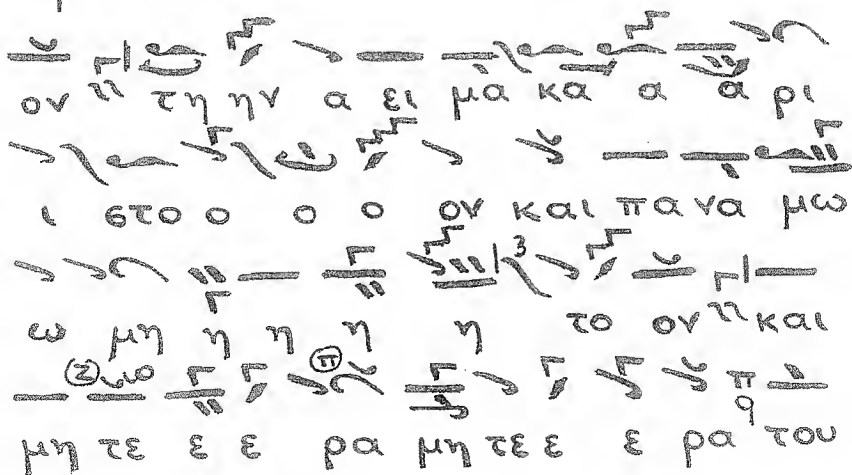 ον τη ην α ει μα κα α α ρι
ι στο ο ο ο ον και πανα μω
ω μη η η η η το ον και
μη τε ε ε ρα μη τε ε ε ρα του